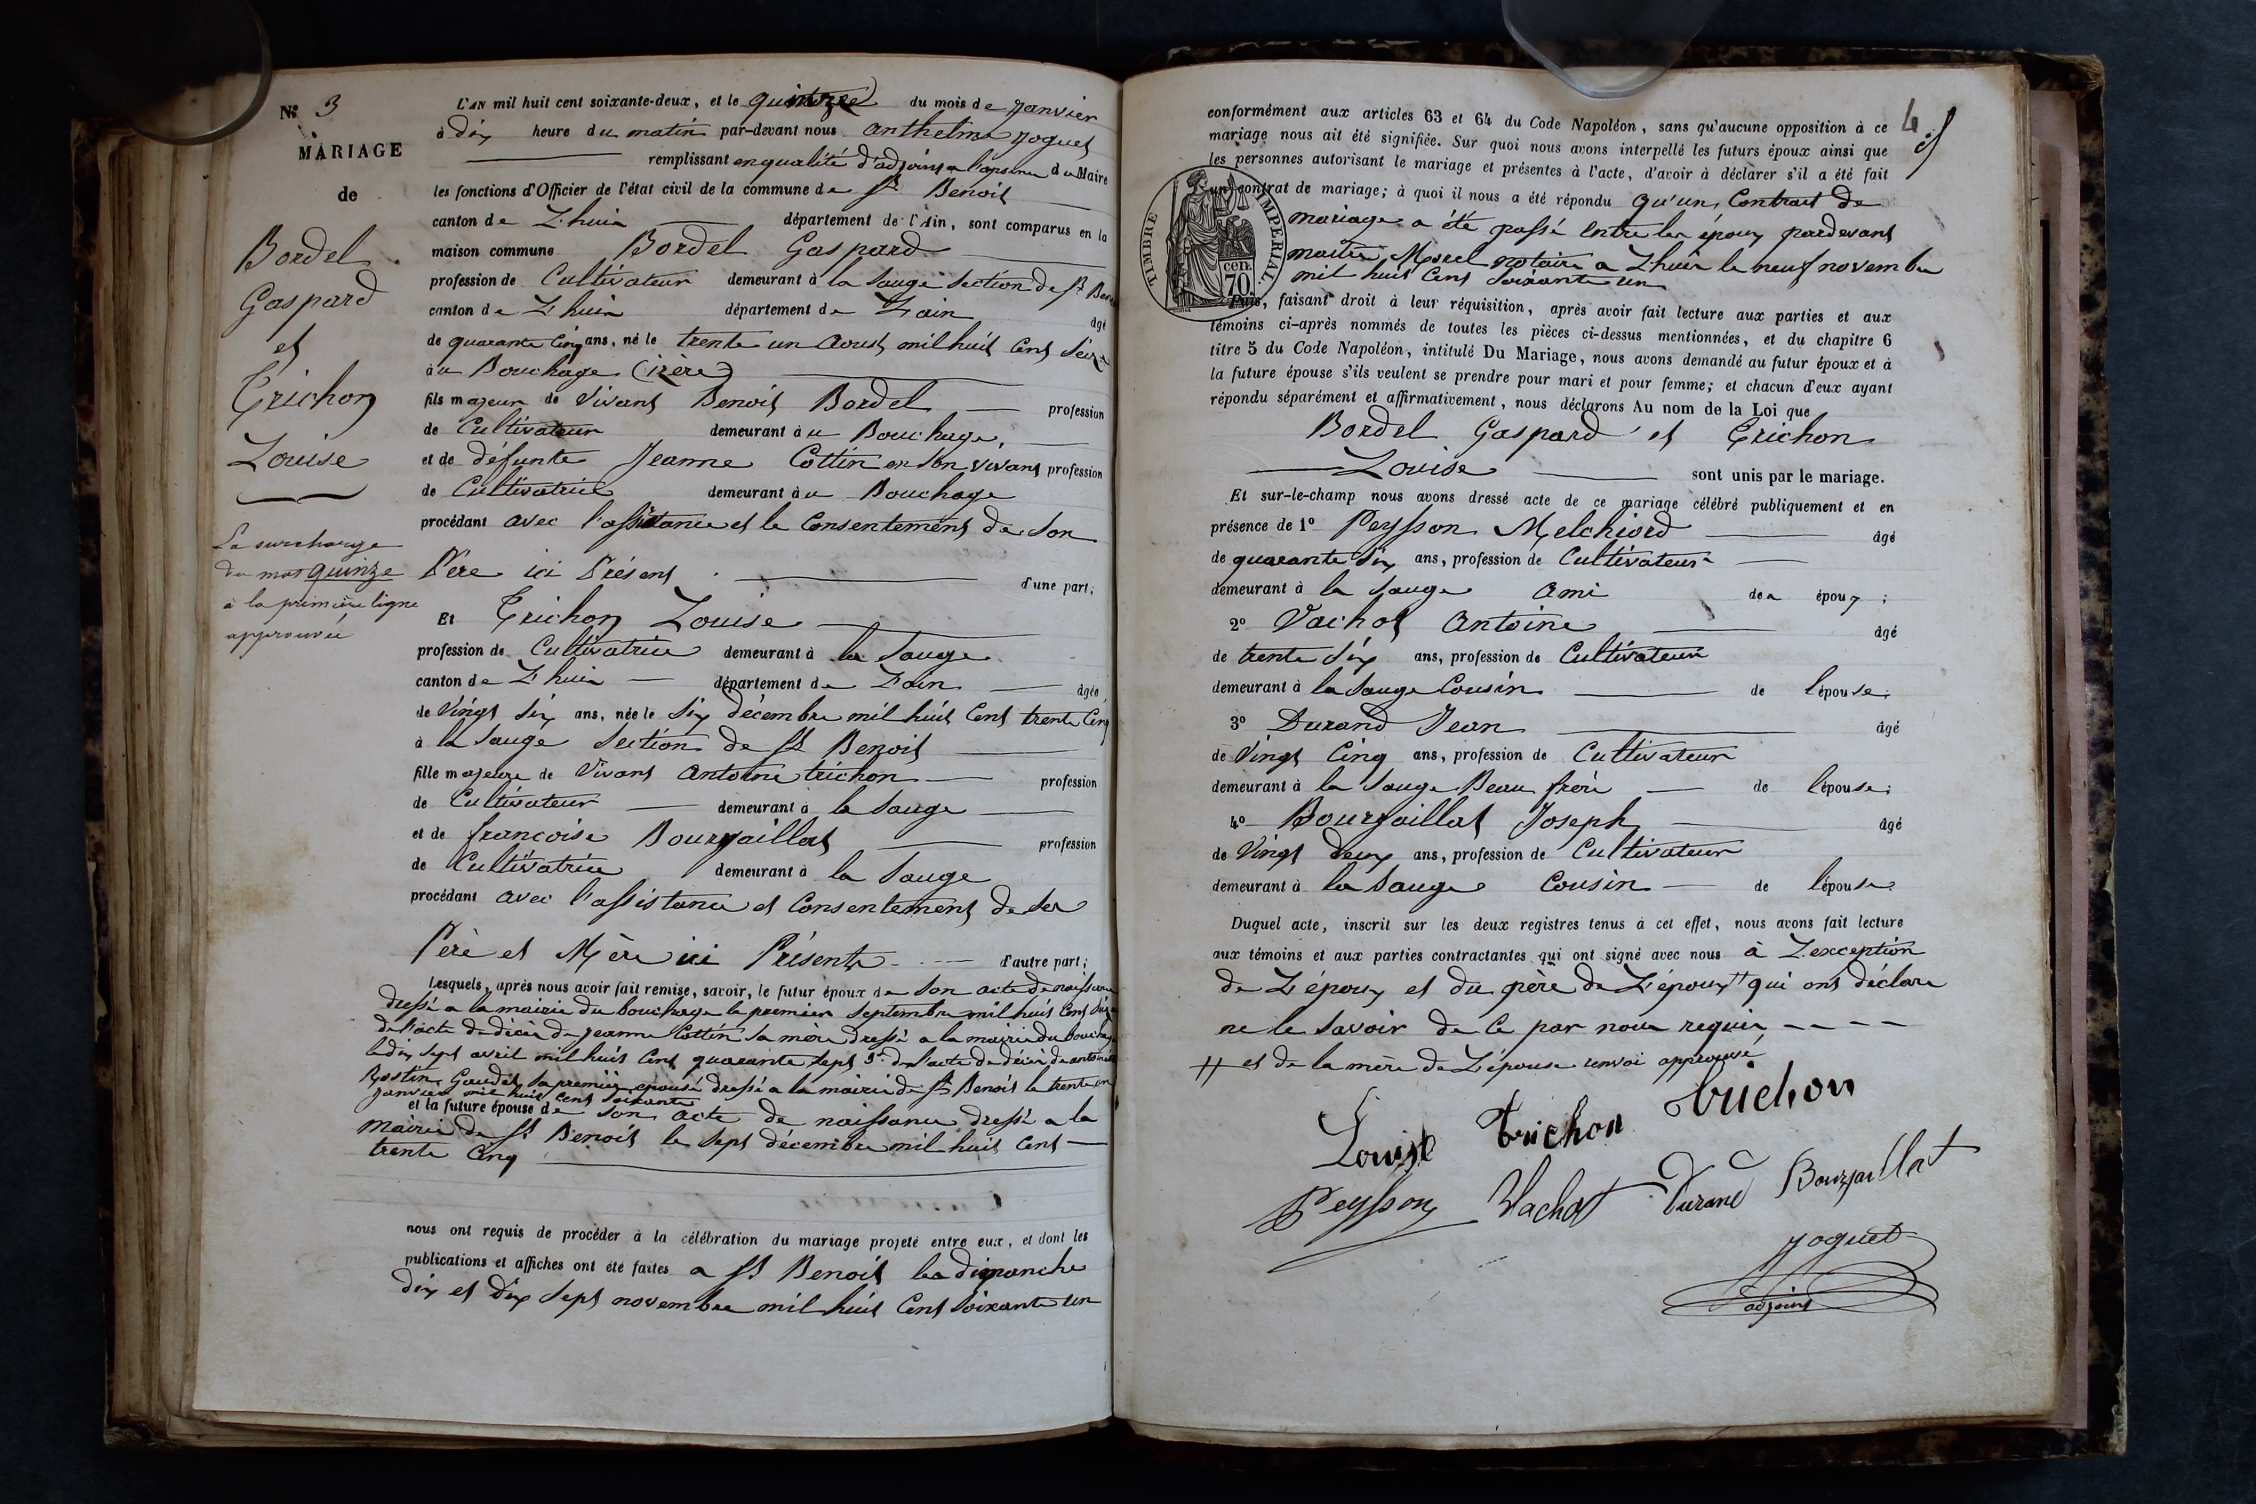 N° 3
MARIAGE
de
Bordel
Gaspard
et
Trichon
Louise
La surcharge
du mot quinze
à la première ligne
approuvée
L'AN mil huit cent soixante-deux, et le quinze du mois de Janvier
à dix heure du matin par-devant nous Anthelme Joguet
remplissant en qualité d'adjoint a l'absence du Maire
les fonctions d'Officier de l'état civil de la commune de St Benoit
canton de Lhuis département de l'Ain, sont comparus en la
maison commune Bordel Gaspard
profession de Cultivateur demeurant à la Sauge Section de St Ben
canton de Lhuis département de L'ain âgé
de quarante Cinq ans, né le trente un Aoust mil huit Cent Seize
à u Bouchage (izère)
fils majeur de vivant Benoit Bordel profession
de Cultivateur demeurant à u Bouchage,
et de défunte Jeanne Cottin en Son vivant profession
de Cultivatrice demeurant à u Bouchage
procédant avec l'assistance et le Consentement de Son
Père ici Présent d'une part;
Et Trichon Louise
profession de Cultivatrice demeurant à la Sauge
canton de Lhuis département de L'ain âgée
de Vingt Six ans, née le Six décembre mil huit Cent trente Cinq
à la Sauge Section de St Benoit
fille majeure de Vivant Antoine trichon profession
de Cultivateur demeurant à la Sauge
et de francoise Bourjaillat profession
de Cultivatrice demeurant à la Sauge
procédant avec l'assistance et Consentement de Ses
Père et Mère ici Présents d'autre part;
Lesquels, après nous avoir fait remise, savoir, le futur époux de Son acte de naissance
dressé a la mairie du bouchage le premier Septembre mil huit Cent Seize
de l'acte de décès de Jeanne Cottin Sa mère dressé a la mairie du Bouchage
le dix Sept avril mil huit Cent quarante Sept 3° de l'acte de décès de antoinette
Gaudet Sa première epouse dressé a la mairie de St Benoit le trente un
Janvier mil huit Cent Soixante
et la future épouse de Son acte de naissance dressé a la
mairie de St Benoit le Sept décembre mil huit Cent
trente Cinq
nous ont requis de procéder à la célébration du mariage projeté entre eux, et dont les
publications et affiches ont été faites a St Benoit les dimanche
dix et Dix Sept novembre mil huit Cent Soixante un
4
conformément aux articles 63 et 64 du Code Napoléon, sans qu'aucune opposition à ce
mariage nous ait été signifiée. Sur quoi nous avons interpellé les futurs époux ainsi que
les personnes autorisant le mariage et présentes à l'acte, d'avoir à déclarer s'il a été fait
un contrat de mariage; à quoi il nous a été répondu qu'un Contrat de
mariage a été passé Entre les époux pardevant
maitre Morel notaire a Lhuis le neuf novembre
mil huit Cent Soixante un
TIMBRE IMPERIAL
cen.
70.
Puis, faisant droit à leur réquisition, après avoir fait lecture aux parties et aux
témoins ci-après nommés de toutes les pièces ci-dessus mentionnées, et du chapitre 6
titre 5 du Code Napoléon, intitulé Du Mariage, nous avons demandé au futur époux et à
la future épouse s'ils veulent se prendre pour mari et pour femme; et chacun d'eux ayant
répondu séparément et affirmativement, nous déclarons Au nom de la Loi que
Bordel Gaspard et Trichon
Louise sont unis par le mariage.
Et sur-le-champ nous avons dressé acte de ce mariage célébré publiquement et en
présence de 1° Peysson Melchiord âgé
de quarante Six ans, profession de Cultivateur
demeurant à la Sauge Ami des époux;
2° Vachot Antoine âgé
de trente Six ans, profession de Cultivateur
demeurant à la Sauge Cousin de l'épouse;
3° Durand Jean âgé
de Vingt Cinq ans, profession de Cultivateur
demeurant à la Sauge Beau frère de l'épouse;
4° Bourjaillat Joseph âgé
de Vingt Deux ans, profession de Cultivateur
demeurant à la Sauge Cousin de l'épouse
Duquel acte, inscrit sur les deux registres tenus à cet effet, nous avons fait lecture
aux témoins et aux parties contractantes qui ont signé avec nous à L'exception
de L'époux et du père de L'époux # qui ont déclare
ne le Savoir de Ce par nous requis
# et de la mère de L'épouse renvoi approuvé
Louise Trichon trichon
Peysson Vachot Durand Bourjaillat
Joguet
adjoint